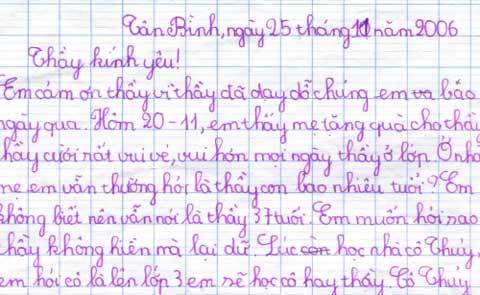 Tân Bình, ngày 25 tháng 11 năm 2006
Thầy kính yêu!
Em cám ơn thầy vì thầy đã dạy dỗ chúng em va bao
ngày qua. Hôm 20-11, em thấy mẹ tặng quà cho thầy
thầy cười nất vui vẻ, vui hơn mọi ngày thầy ở lớp. Ở nhà
mẹ em vẫn thường hỏi là thầy con bao nhiêu tuổi? Em
không biết nên vẫn nói là thầy 37 tuổi. Em muốn hỏi sao
thầy không hiền mà lại dữ. Lúc còn học nhà cô Thuỷ,
em hỏi cô là lên lớp 3 em sẽ học cô hay thầy. Cô Thuỷ